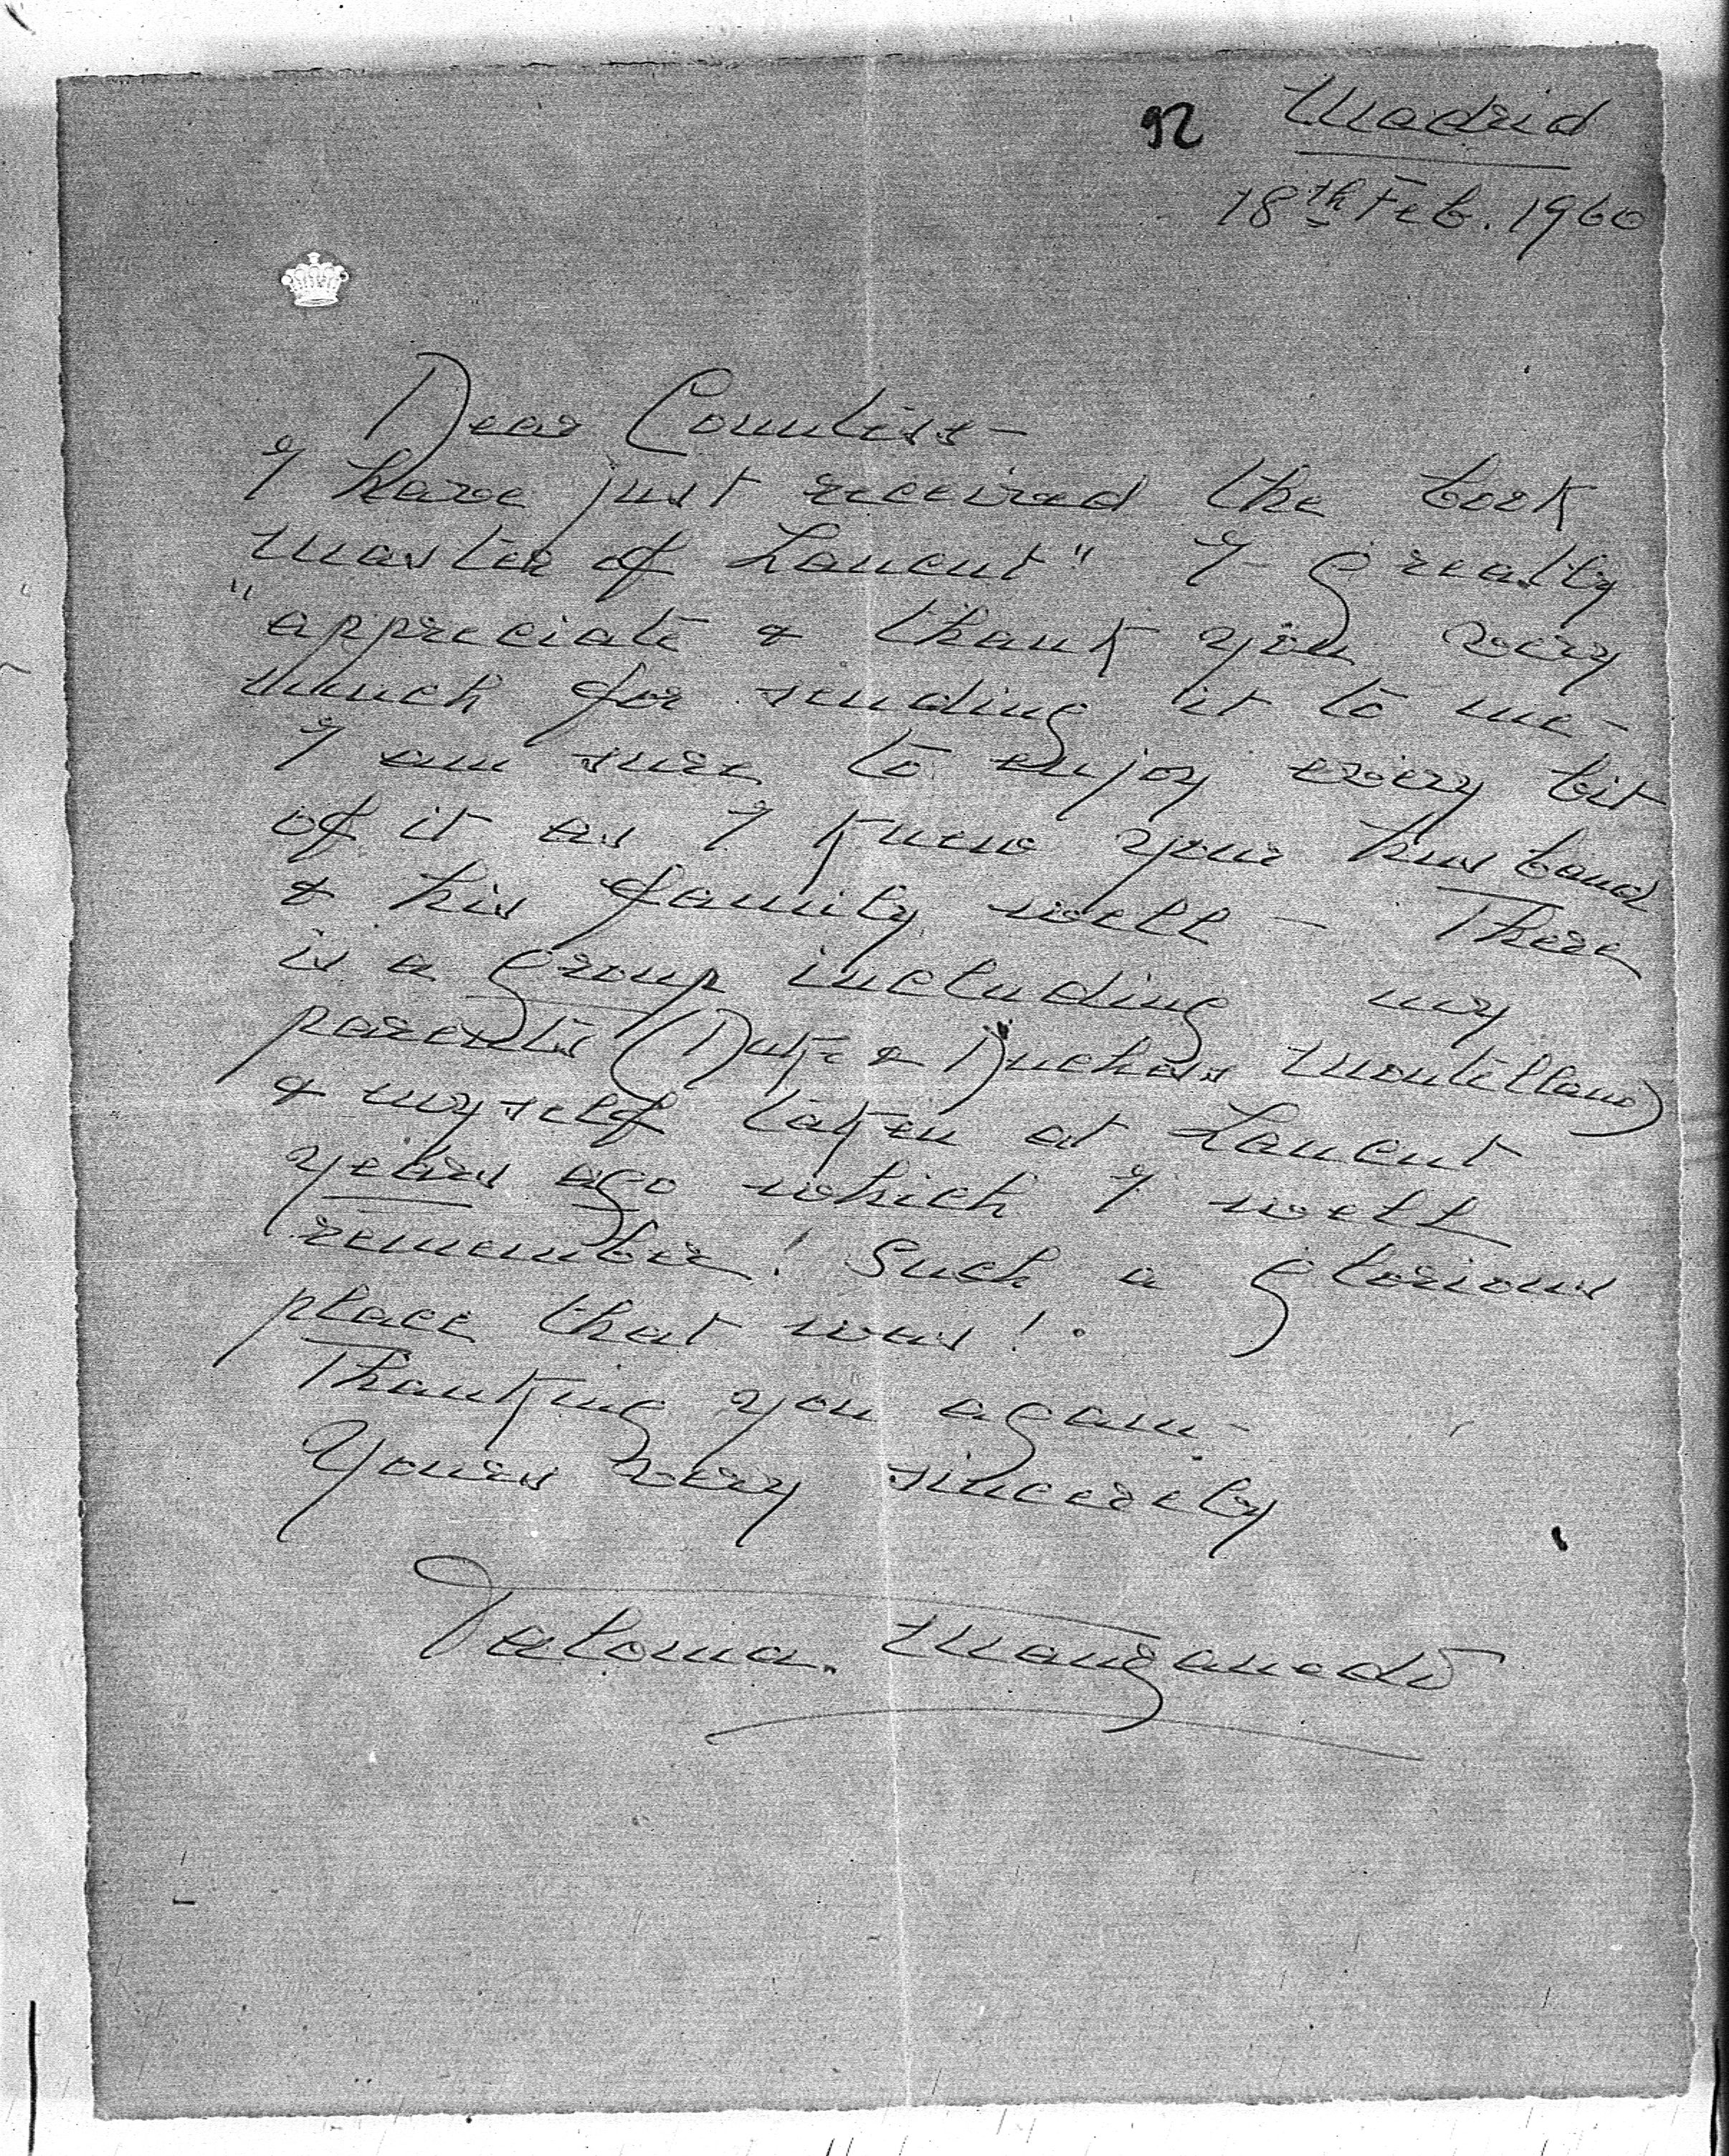 92 Madrid
18th Feb. 1960
Dear Countess-
I have just received the book
"Master of Lancut" I greatly
appreciate & thank you very
much for sending it to me-
I am sure to enjoy every bit
of it as I knew your husband
& his family well - There
is a group including my
parents (Duke & Duchess Montellano)
& myself taken at Lancut
years ago which I well
remember! Such a glorious
place that was!
Thanking you again-
Yours very sincerely
Paloma.